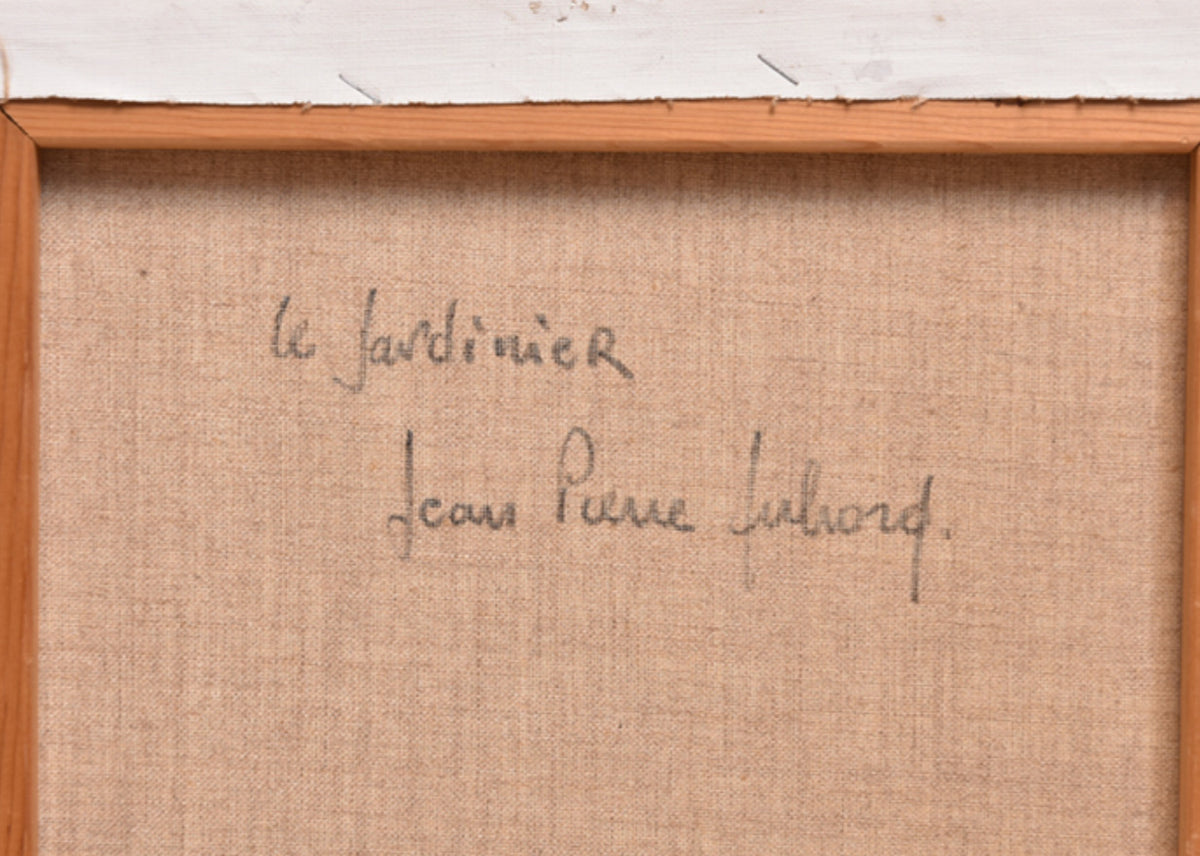 le Jardinier
Jean Pierre